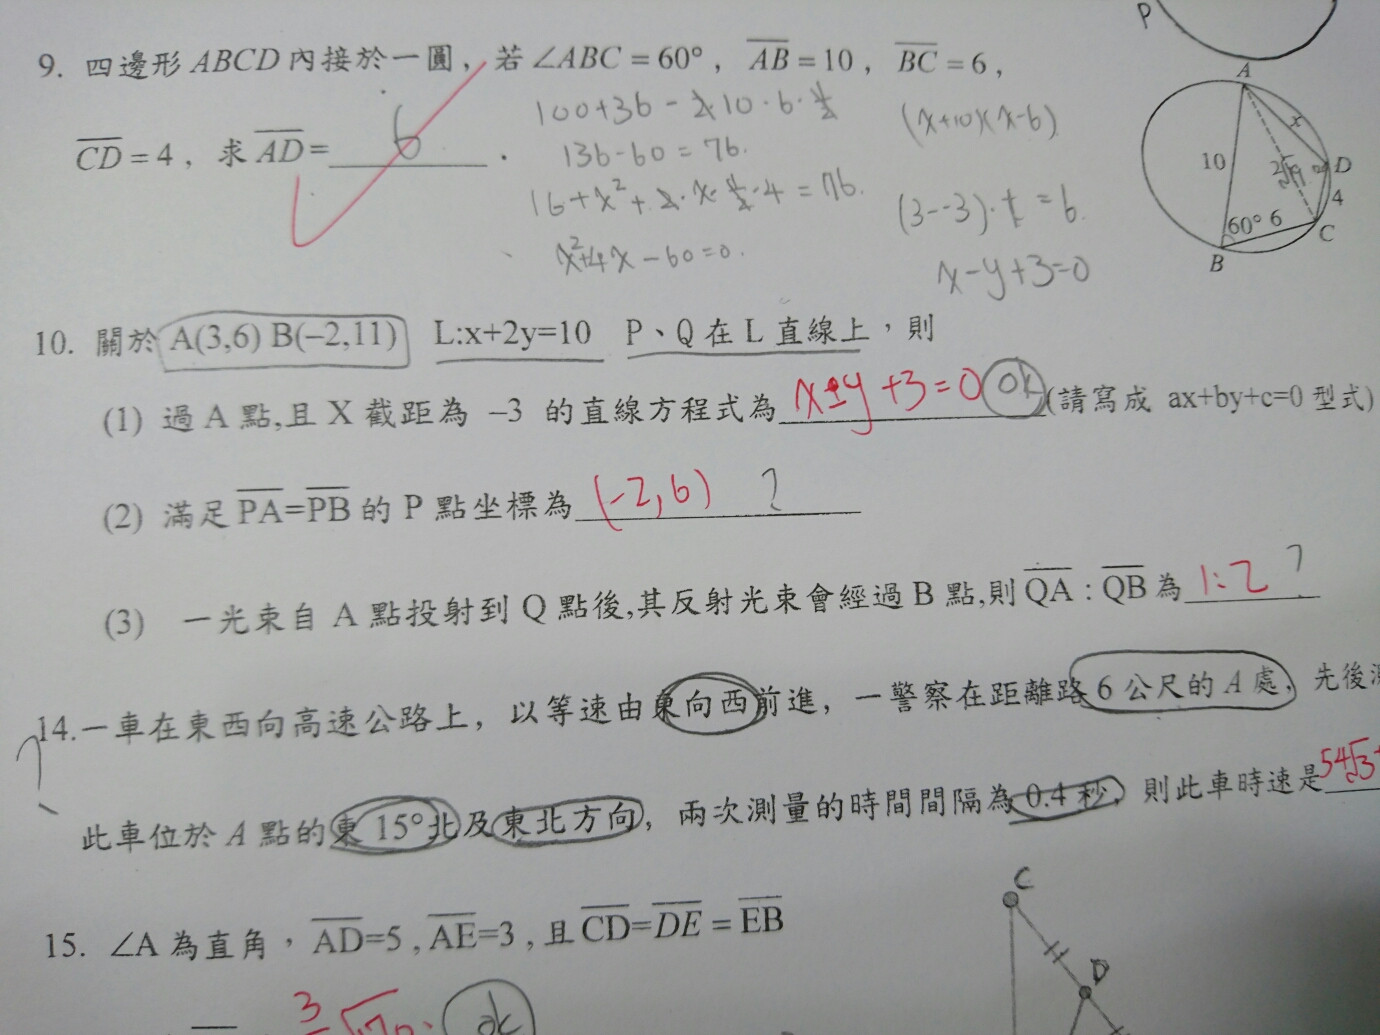 P
9. 四邊形 ABCD 內接於一圓，若 ∠ABC = 60°， AB = 10， BC = 6，
CD = 4， 求 AD = 6 .
100+36 - 2·10·6·½
136-60 = 76.
16+x²+2·x·½·4 = 76.
x²+4x-60=0.
(x+10)(x-6)
(3--3)·t = 6.
x-y+3=0
A
x
10
2√19
D
4
60° 6
C
B
10. 關於 A(3,6) B(–2,11) L:x+2y=10 P、Q 在 L 直線上，則
(1) 過 A 點,且 X 截距為 –3 的直線方程式為 x-y+3=0 ok (請寫成 ax+by+c=0 型式)
(2) 滿足 PA=PB 的 P 點坐標為 (-2,6) ?
(3) 一光束自 A 點投射到 Q 點後,其反射光束會經過 B 點,則 QA : QB 為 1:2 ?
14.一車在東西向高速公路上，以等速由東向西前進，一警察在距離路 6 公尺的 A 處，先後
?
此車位於 A 點的東 15°北及東北方向，兩次測量的時間間隔為 0.4 秒，則此車時速是 54√3
15. ∠A 為直角，AD=5 , AE=3 , 且 CD=DE = EB
C
D
ok